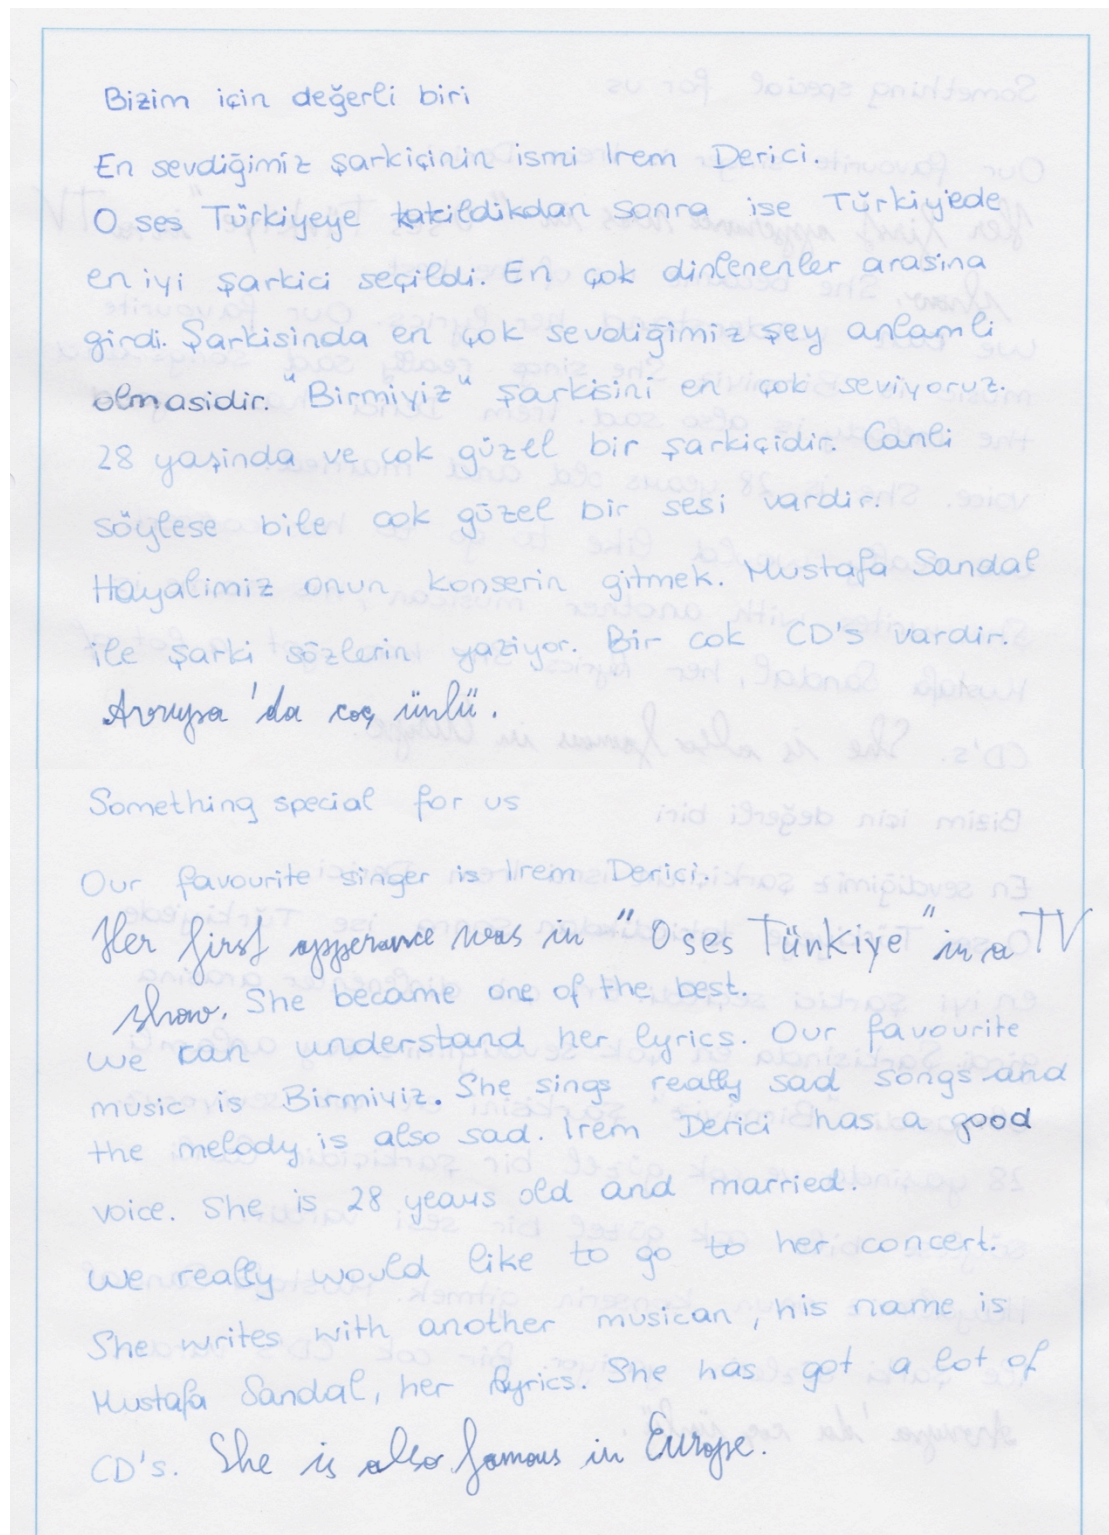 Bizim için değerli biri
En sevdiğimiz şarkiçinin ismi Irem Derici.
O ses Türkiyeye katildikdan sonra ise Türkiyede
en iyi şarkici seçildi. En çok dinlenenler arasina
girdi. Şarkisinda en çok sevdiğimiz şey anlamli
olmasidir. "Birmiyiz" şarkisini en çok seviyoruz.
28 yaşinda ve çok güzel bir şarkiçidir. Canli
söylese bile çok güzel bir sesi vardir.
Hayalimiz onun konserin gitmek. Mustafa Sandal
ile şarki sözlerin yaziyor. Bir cok CD's vardir.
Avrupa'da coç ünlü.
Something special for us
Our favourite singer is Irem Derici.
Her first apperance was in "O ses Türkiye" in a TV
show. She became one of the best.
We can understand her lyrics. Our favourite
music is Birmiyiz. She sings really sad songs and
the melody is also sad. Irem Derici has a good
voice. She is 28 years old and married.
We really would like to go to her concert.
She writes with another musican, his name is
Mustafa Sandal, her lyrics. She has got a lot of
CD's. She is also famous in Europe.